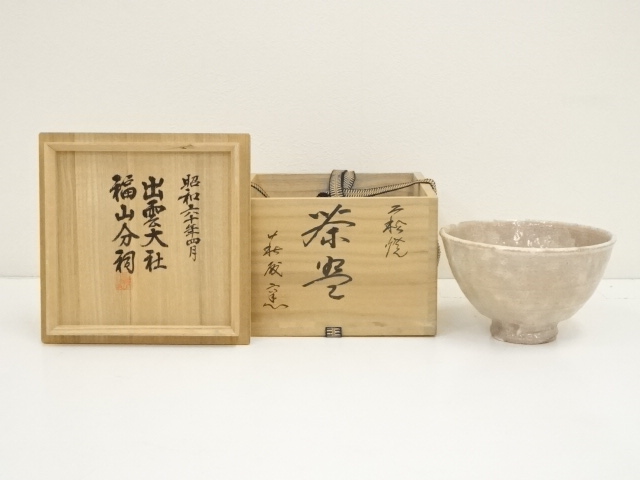 昭和六十年四月
出雲大社
福山分祠
二松焼
茶盌